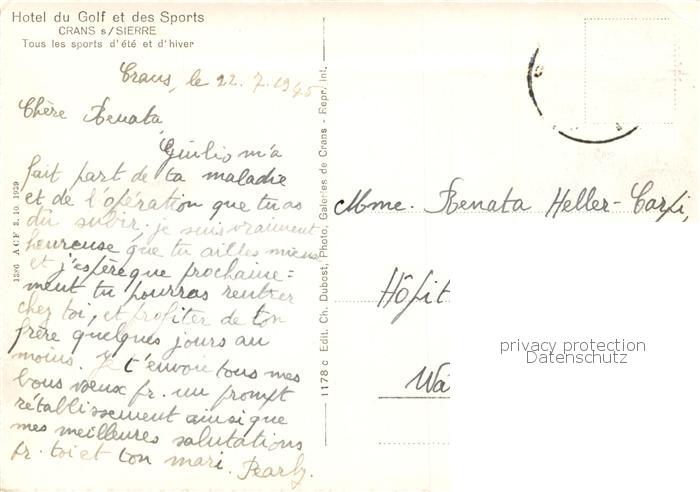 Hotel du Golf et des Sports
CRANS s/SIERRE
Tous les sports d'été et d'hiver
Crans, le 22.7.1945
Chère Renata
Giulio m'a
fait part de ta maladie
et de l'opération que tu as
dû subir. je suis vraiment
heureuse que tu ailles mieux
et j'espère que prochaine=
ment tu pourras rentrer
chez toi, et profiter de ton
frère quelques jours au
moins. Je t'envoie tous mes
bons vœux pr. un prompt
rétablissement ainsi que
mes meilleures salutations
pr. toi et ton mari. Pearly.
1386 ACF 3. 10. 1939
1178 c Edit. Ch. Dubost, Photo, Galeries de Crans - Repr. int.
Mme. Renata Heller-Carpi,
Hôpit
Wä
privacy protection
Datenschutz